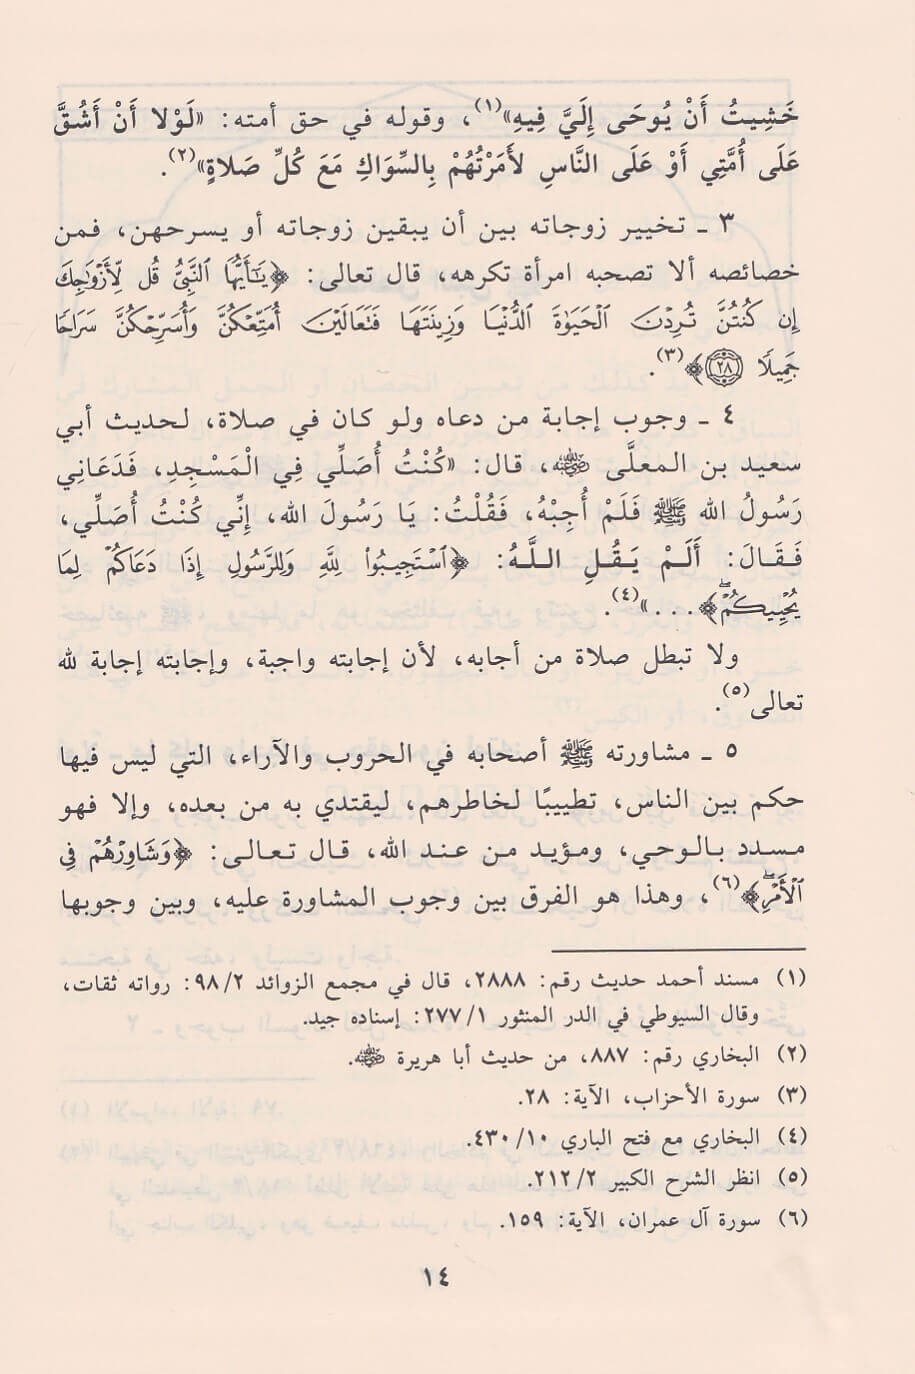 خَشِيتُ أَنْ يُوحَى إِلَيَّ فِيهِ»(١)، وقوله في حق أمته: «لَوْلا أَنْ أَشُقَّ
عَلَى أُمَّتِي أَوْ عَلَى النَّاسِ لأَمَرْتُهُمْ بِالسِّوَاكِ مَعَ كُلِّ صَلاةٍ»(٢).
٣ ـ تخيير زوجاته بين أن يبقين زوجاته أو يسرحهن، فمن
خصائصه ألا تصحبه امرأة تكرهه، قال تعالى: ﴿يَٰٓأَيُّهَا ٱلنَّبِيُّ قُل لِّأَزْوَٰجِكَ
إِن كُنتُنَّ تُرِدْنَ ٱلْحَيَوٰةَ ٱلدُّنْيَا وَزِينَتَهَا فَتَعَالَيْنَ أُمَتِّعْكُنَّ وَأُسَرِّحْكُنَّ سَرَاحًا
جَمِيلًا ۝٢٨﴾(٣).
٤ ـ وجوب إجابة من دعاه ولو كان في صلاة، لحديث أبي
سعيد بن المعلَّى رضي الله عنه، قال: «كُنْتُ أُصَلِّي فِي الْمَسْجِدِ، فَدَعَانِي
رَسُولُ الله ﷺ فَلَمْ أُجِبْهُ، فَقُلْتُ: يَا رَسُولَ الله، إِنِّي كُنْتُ أُصَلِّي،
فَقَالَ: أَلَمْ يَقُلِ اللَّهُ: ﴿ٱسْتَجِيبُوا۟ لِلَّهِ وَلِلرَّسُولِ إِذَا دَعَاكُمْ لِمَا
يُحْيِيكُمْۖ﴾...»(٤).
ولا تبطل صلاة من أجابه، لأن إجابته واجبة، وإجابته إجابة لله
تعالى(٥).
٥ ـ مشاورته ﷺ أصحابه في الحروب والآراء، التي ليس فيها
حكم بين الناس، تطييبًا لخاطرهم، ليقتدي به من بعده، وإلا فهو
مسدد بالوحي، ومؤيد من عند الله، قال تعالى: ﴿وَشَاوِرْهُمْ فِى
ٱلْأَمْرِۖ﴾(٦)، وهذا هو الفرق بين وجوب المشاورة عليه، وبين وجوبها
(١) مسند أحمد حديث رقم: ٢٨٨٨، قال في مجمع الزوائد ٩٨/٢: رواته ثقات،
وقال السيوطي في الدر المنثور ٢٧٧/١: إسناده جيد.
(٢) البخاري رقم: ٨٨٧، من حديث أبا هريرة رضي الله عنه.
(٣) سورة الأحزاب، الآية: ٢٨.
(٤) البخاري مع فتح الباري ٤٣٠/١٠.
(٥) انظر الشرح الكبير ٢١٢/٢.
(٦) سورة آل عمران، الآية: ١٥٩.
١٤